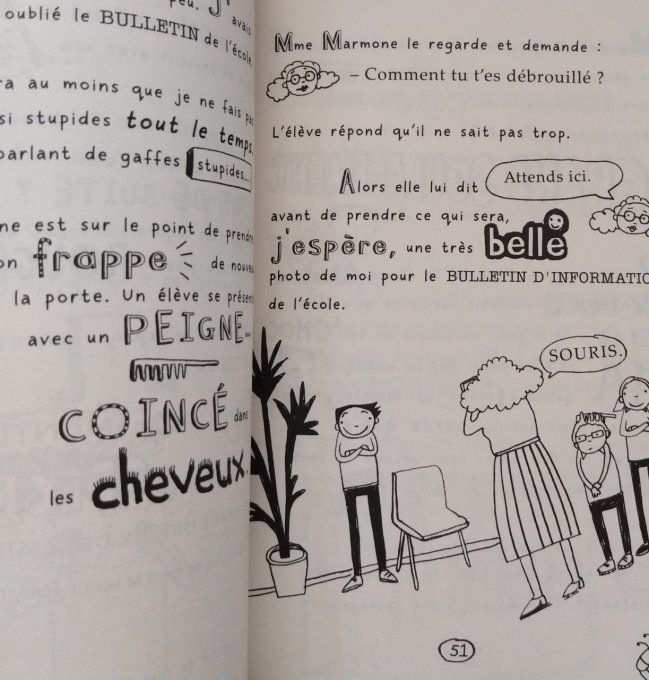 peu. J'avais
oublié le BULLETIN de l'école.
au moins que je ne fais pas
si stupides tout le temps.
parlant de gaffes stupides...
ne est sur le point de prendre
on frappe de nouveau
la porte. Un élève se présente
avec un PEIGNE
COINCÉ dans
les cheveux.
Mme Marmone le regarde et demande :
– Comment tu t'es débrouillé ?
L'élève répond qu'il ne sait pas trop.
Alors elle lui dit Attends ici.
avant de prendre ce qui sera,
j'espère, une très belle
photo de moi pour le BULLETIN D'INFORMATIO
de l'école.
SOURIS.
51